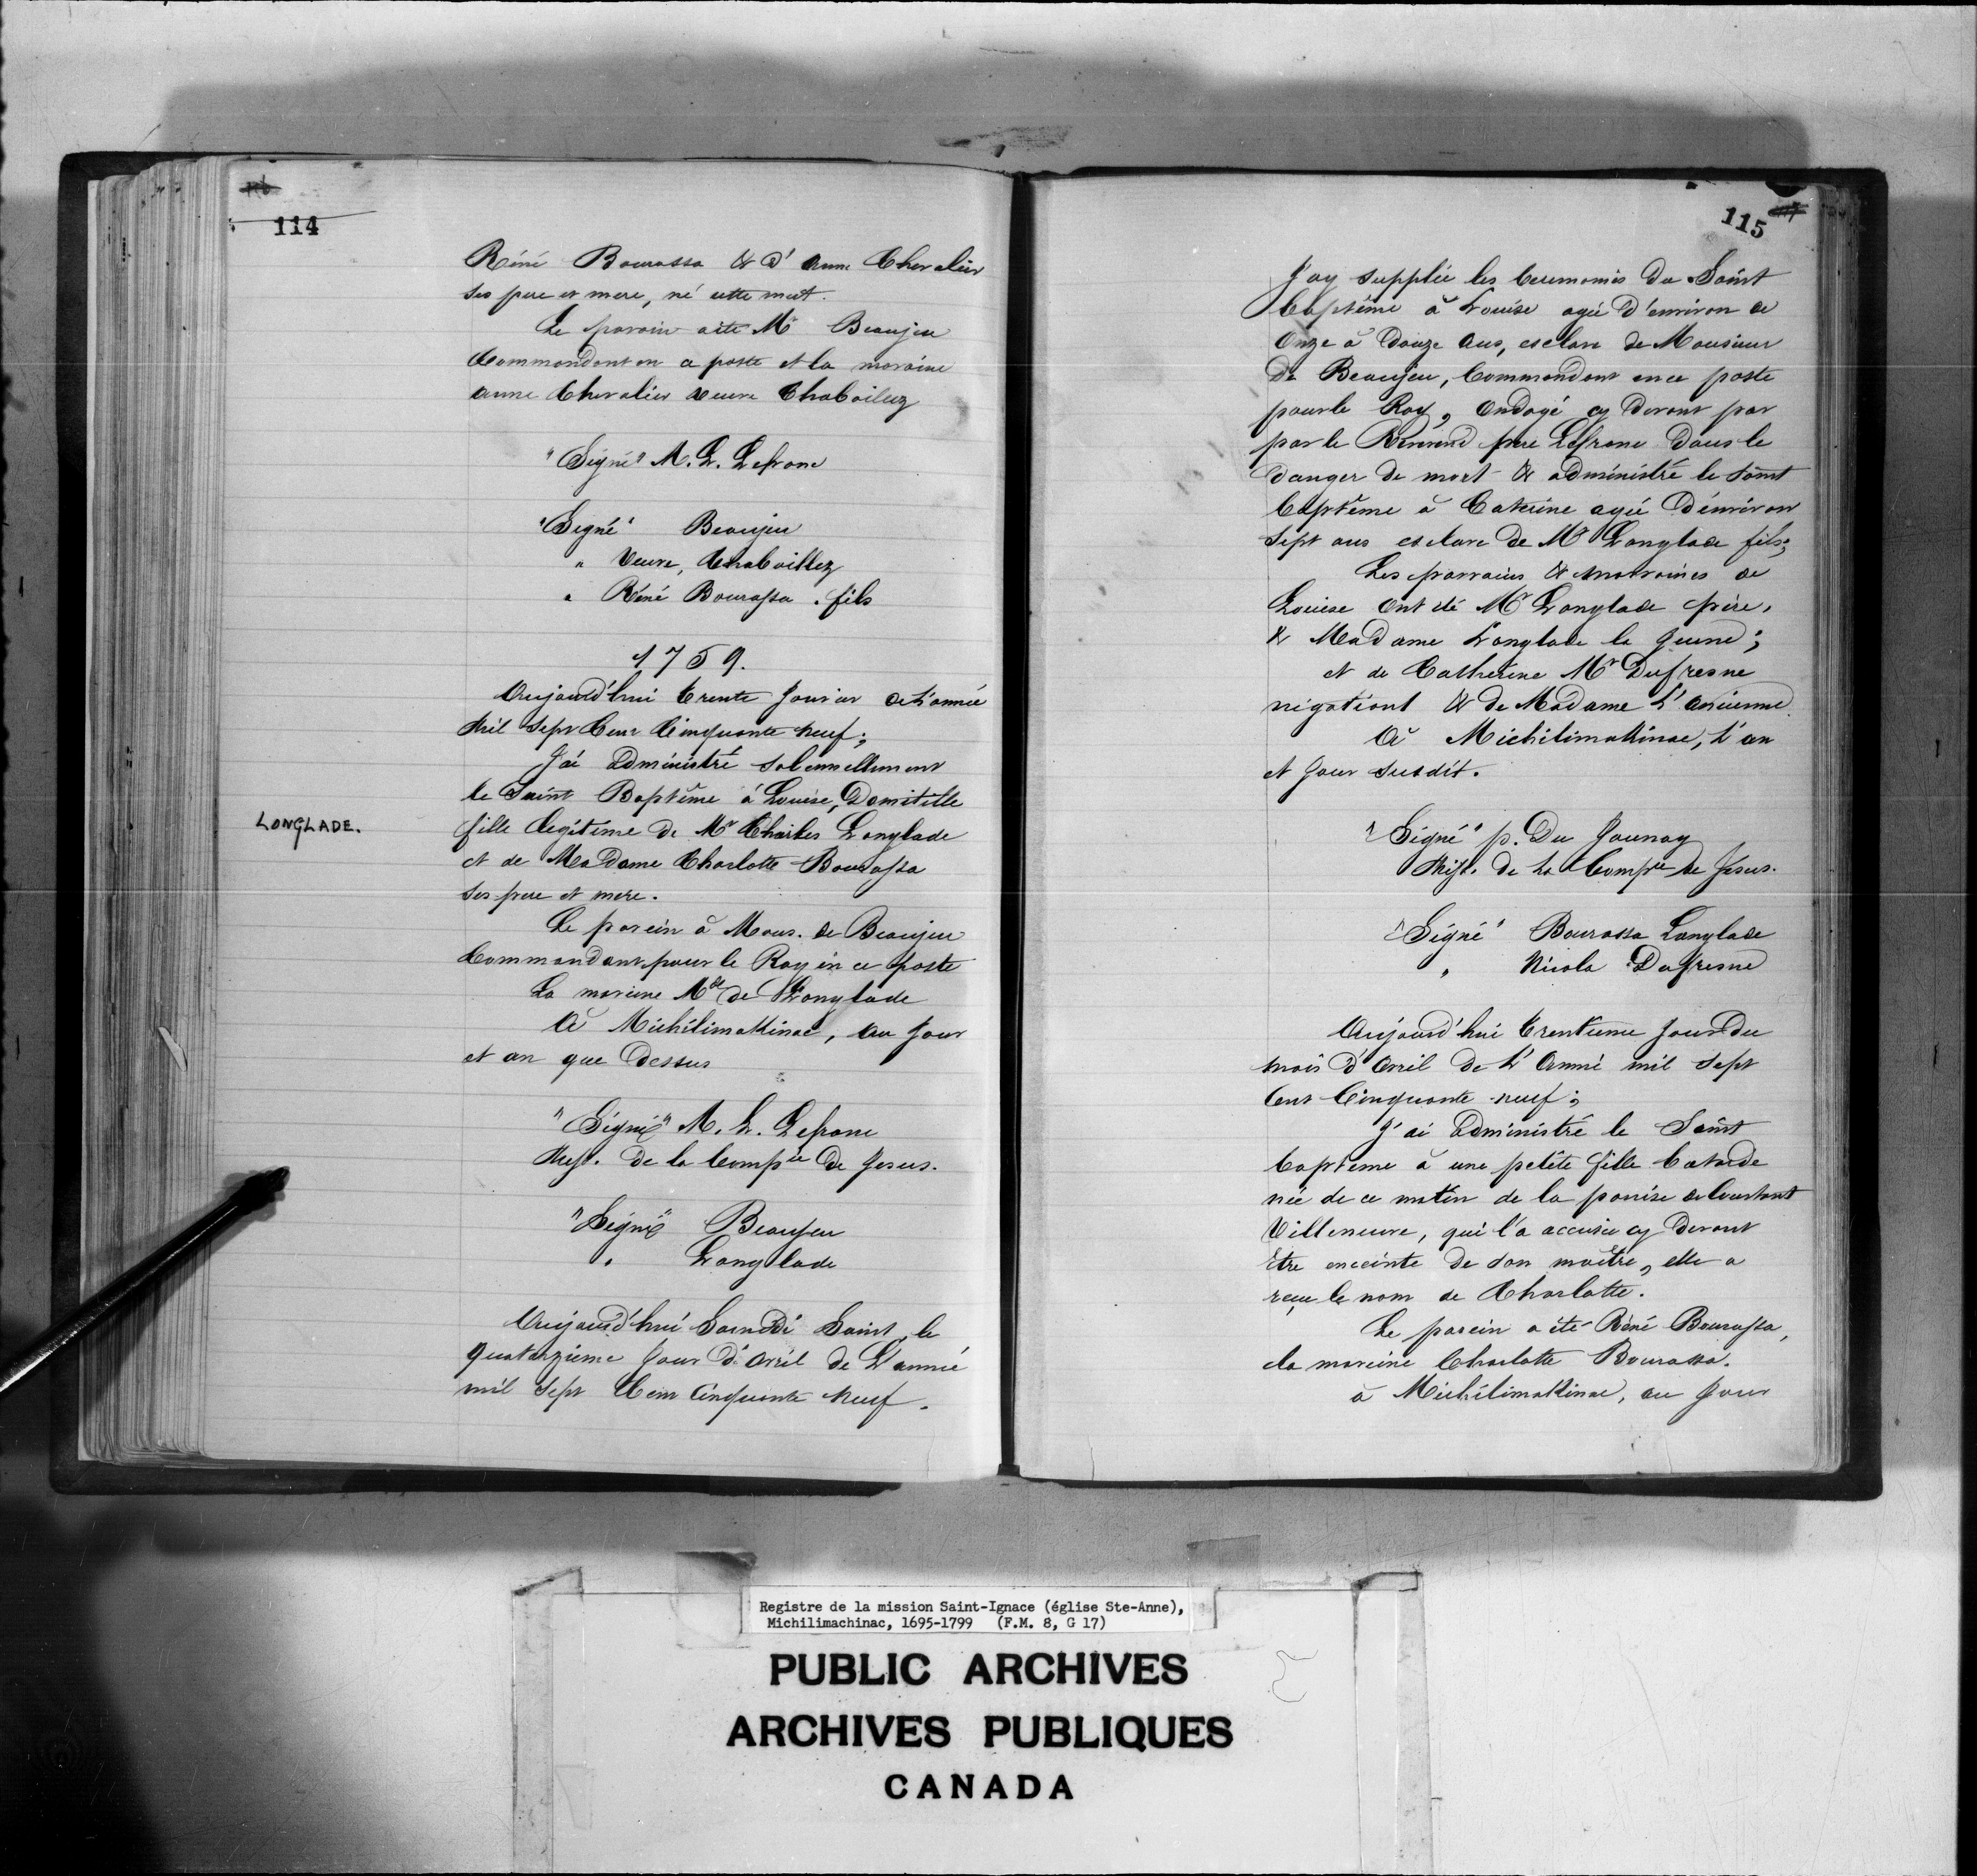 114
Réné Bourassa & d'Anne Chevalier
ses pere et mere, né cette nuit.
Le parain a ete Mr Beaujeu
Commandant en ce poste et la maraine
anne Chevalier veuve Chaboillez
"Signé" M. L. Lefranc
"Signé" Beaujeu
" Veuve, Chaboillez
" Réné Bourassa . fils
1759.
Aujourd'hui trente Janvier de L'année
Mil Sept Cent Cinquante neuf;
J'ai administré solennellement
le Saint Baptême à Louise, Domitille
LONGLADE.
fille legitime de Mr Charles Longlade
et de Madame Charlotte Bourassa
ses pere et mere.
Le parein à Mons. de Beaujeu
Commandant pour le Roy en ce poste
La mareine Mde de Longlade
à Michilimakinac, au Jour
et an que dessus
"Signé" M. L. Lefranc
Miss. de la Compie de Jesus.
"Signé" Beaujeu
" Longlade
Aujourd'hui Samedi Saint le
quatorzieme Jour d'avril de L'année
mil Sept Cent Cinquante neuf.
115
J'ay supplée les Ceremonies du Saint
Baptême à Louise agée d'environ de
Onze à douze Ans, esclave de Monsieur
de Beaujeu, Commandant en ce poste
pour le Roy, Ondoyé cy devant par
par le Reverend pere Lefranc dans le
danger de mort & administré le saint
baptême à Caterine agée d'environ
sept ans esclave de Mr Longlade fils;
Les parrains & marraines de
Louise ont été Mr Longlade père,
& Madame Longlade la Jeune;
et de Catherine Mr Dufresne
negotiant & de Madame L'ancienne
à Michilimakinac, L'an
et Jour susdit.
"Signé" p. Du Jaunay
Miss. de la Compie de Jesus.
"Signé" Bourassa Langlade
" Nicola Dufresne
Aujourd'hui trentieme Jour du
mois d'avril de L'Anné mil sept
Cent Cinquante neuf;
J'ai administré le Saint
baptême à une petite fille batarde
née de ce matin de la panise de Coustant
Villeneuve, qui l'a accusée cy devant
Etre enceinte de son maître, elle a
reçu le nom de Charlotte.
Le parein a été Réné Bourassa,
la mareine Charlotte Bourassa.
à Michilimakinac, au Jour
Registre de la mission Saint-Ignace (église Ste-Anne),
Michilimachinac, 1695-1799 (F.M. 8, G 17)
PUBLIC ARCHIVES
ARCHIVES PUBLIQUES
CANADA